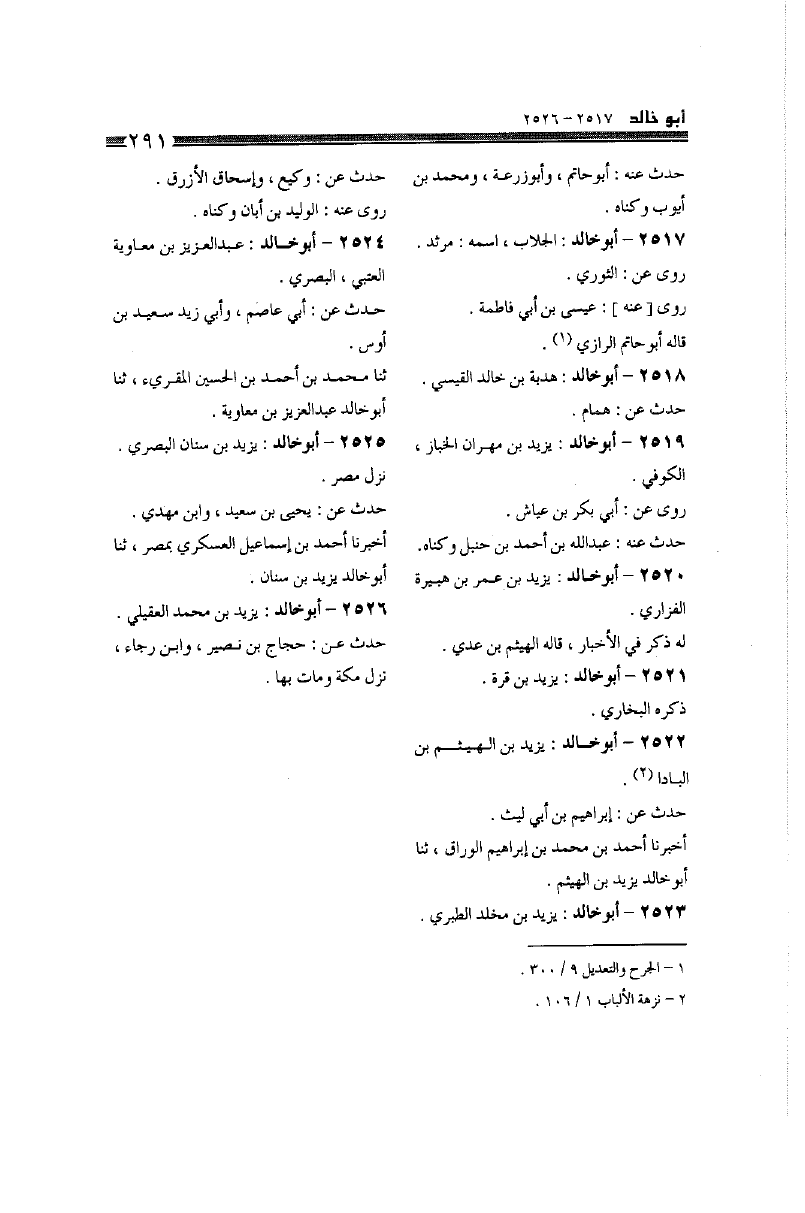 أبو خالد ٢٥١٧ - ٢٥٢٦
٢٩١
حدث عنه : أبوحاتم ، وأبوزرعة ، ومحمد بن
أيوب وكناه .
٢٥١٧ - أبوخالد : الجلاب ، اسمه : مرثد .
روى عن : الثوري .
روى [ عنه ] : عيسى بن أبي فاطمة .
قاله أبوحاتم الرازي (١) .
٢٥١٨ - أبوخالد : هدبة بن خالد القيسي .
حدث عن : همام .
٢٥١٩ - أبوخالد : يزيد بن مهران الخباز ،
الكوفي .
روى عن : أبي بكر بن عياش .
حدث عنه : عبدالله بن أحمد بن حنبل وكناه.
٢٥٢٠ - أبوخالد : يزيد بن عمر بن هبيرة
الفزاري .
له ذكر في الأخبار ، قاله الهيثم بن عدي .
٢٥٢١ - أبوخالد : يزيد بن قرة .
ذكره البخاري .
٢٥٢٢ - أبوخالد : يزيد بن الهيثم بن
البادا (٢) .
حدث عن : إبراهيم بن أبي ليث .
أخبرنا أحمد بن محمد بن إبراهيم الوراق ، ثنا
أبوخالد يزيد بن الهيثم .
٢٥٢٣ - أبوخالد : يزيد بن مخلد الطبري .
حدث عن : وكيع ، وإسحاق الأزرق .
روى عنه : الوليد بن أبان وكناه .
٢٥٢٤ - أبوخالد : عبدالعزيز بن معاوية
العتبي ، البصري .
حدث عن : أبي عاصم ، وأبي زيد سعيد بن
أوس .
ثنا محمد بن أحمد بن الحسين المقريء ، ثنا
أبوخالد عبدالعزيز بن معاوية .
٢٥٢٥ - أبوخالد : يزيد بن سنان البصري .
نزل مصر .
حدث عن : يحيى بن سعيد ، وابن مهدي .
أخبرنا أحمد بن إسماعيل العسكري بمصر ، ثنا
أبوخالد يزيد بن سنان .
٢٥٢٦ - أبوخالد : يزيد بن محمد العقيلي .
حدث عن : حجاج بن نصير ، وابن رجاء ،
نزل مكة ومات بها .
١ - الجرح والتعديل ٩ / ٣٠٠ .
٢ - نزهة الألباب ١ / ١٠٦ .